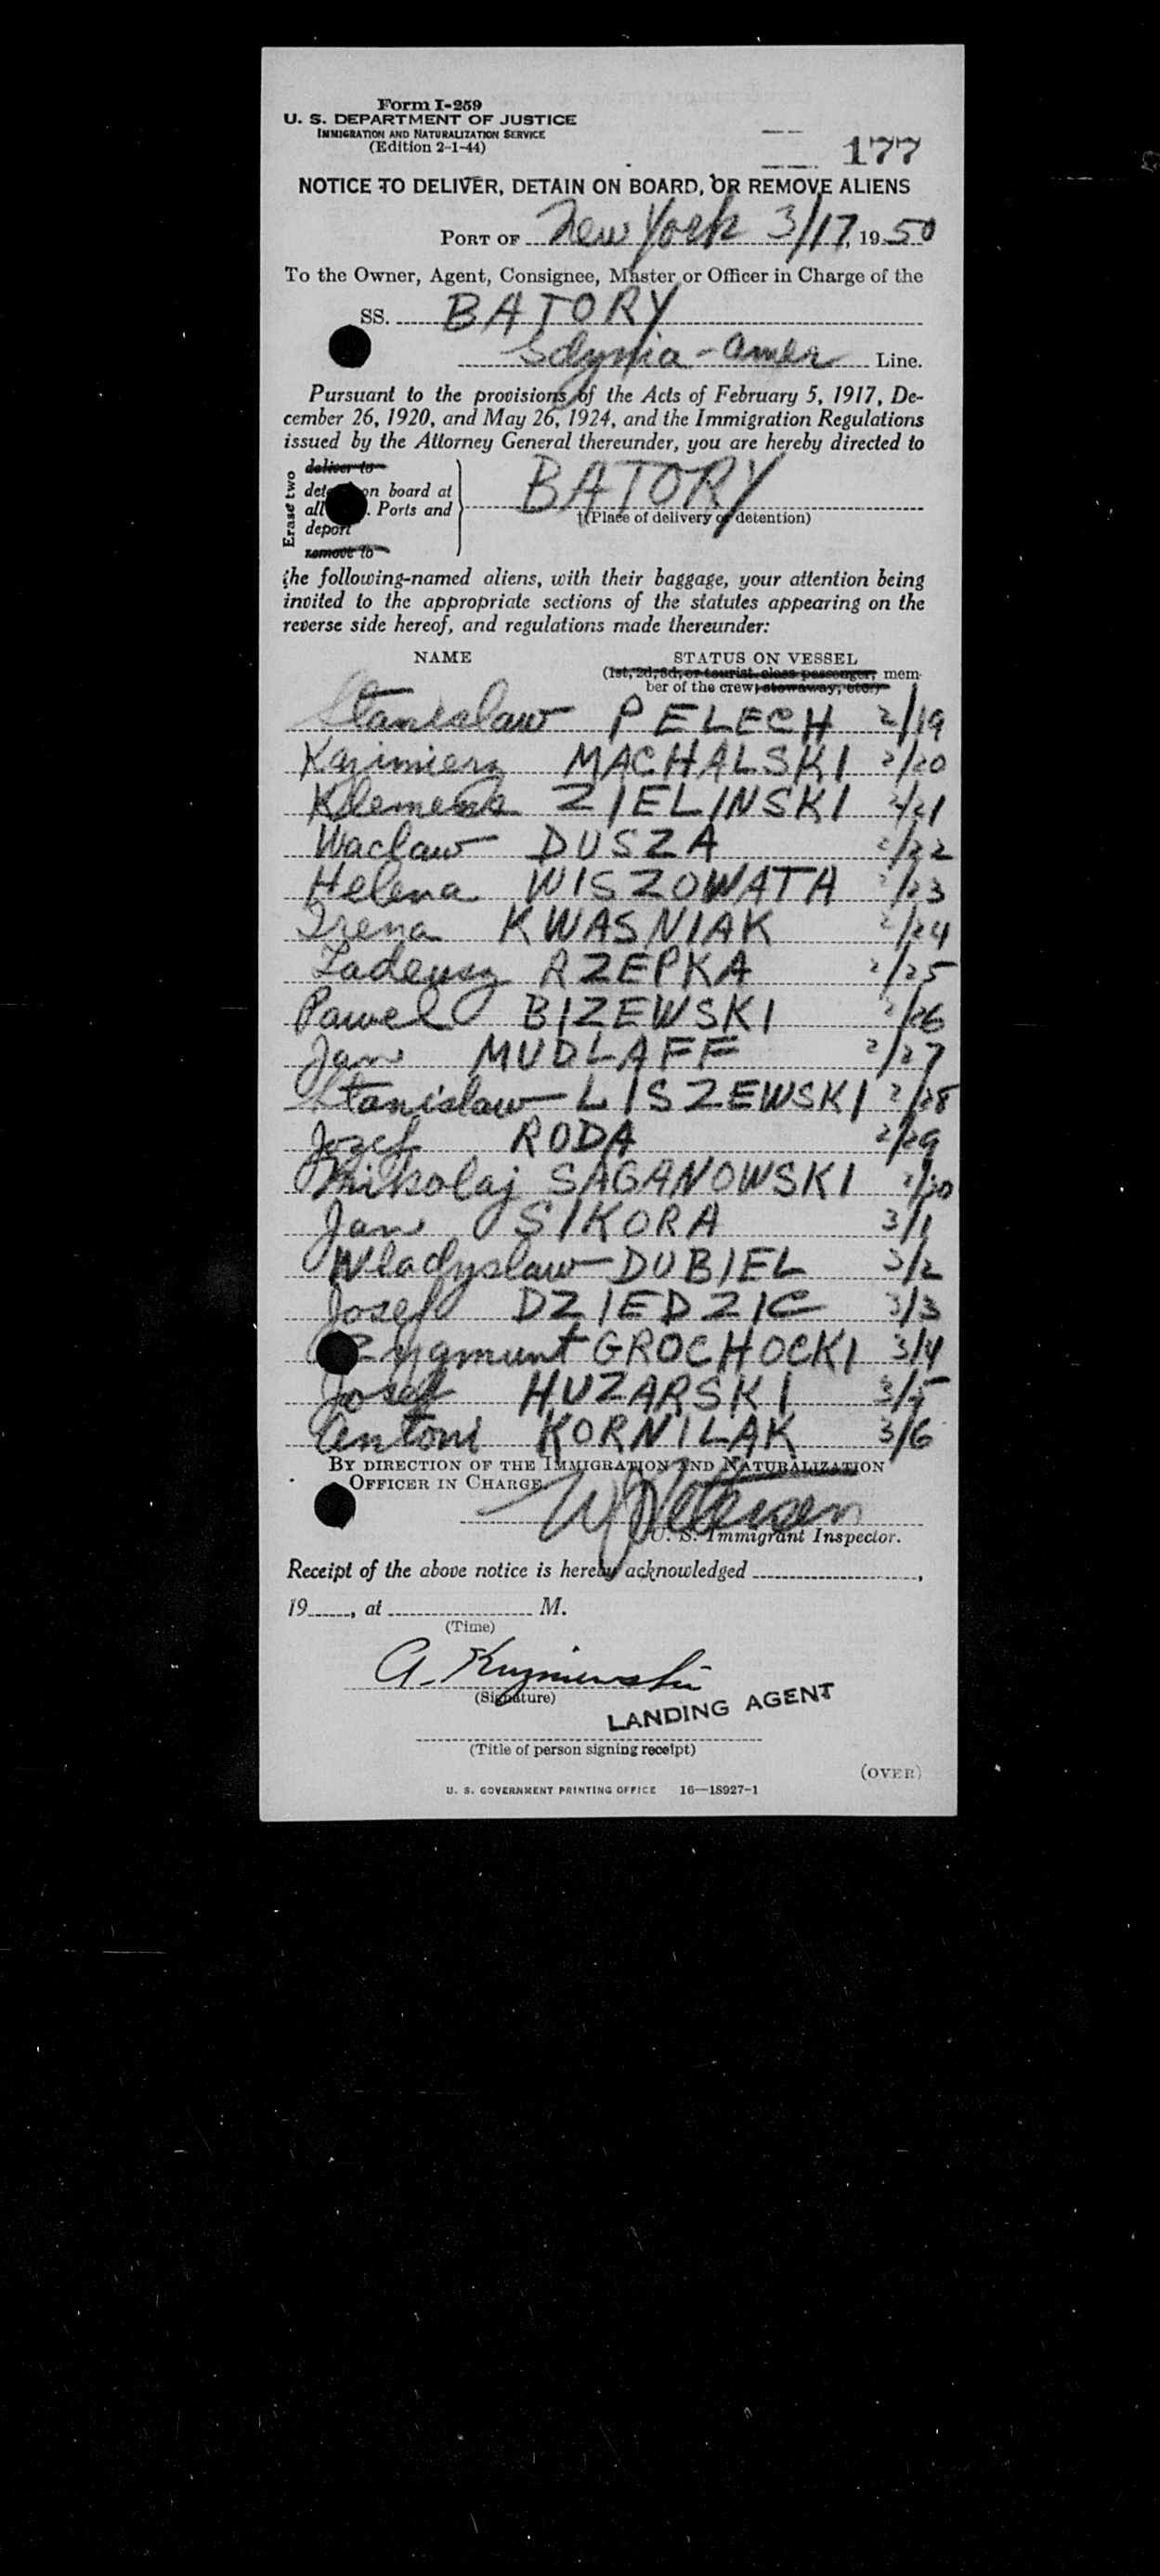 Form I-259
U. S. DEPARTMENT OF JUSTICE
IMMIGRATION AND NATURALIZATION SERVICE
(Edition 2-1-44)
177
NOTICE TO DELIVER, DETAIN ON BOARD, OR REMOVE ALIENS
PORT OF New York 3/17, 1950
To the Owner, Agent, Consignee, Master or Officer in Charge of the
SS. BATORY
Gdynia-Amer Line.
Pursuant to the provisions of the Acts of February 5, 1917, De-
cember 26, 1920, and May 26, 1924, and the Immigration Regulations
issued by the Attorney General thereunder, you are hereby directed to
Erase two
deliver to
on board at
all Ports and
deport
remove to
BATORY
†(Place of delivery or detention)
the following-named aliens, with their baggage, your attention being
invited to the appropriate sections of the statutes appearing on the
reverse side hereof, and regulations made thereunder:
NAME STATUS ON VESSEL
(1st, 2d, 3d, or tourist class passenger, mem-
ber of the crew, stowaway, etc.)
Stanislaw PELECH 2/19
Kazimierz MACHALSKI 2/20
Klemens ZIELINSKI 2/21
Wacław DUSZA 2/22
Helena WISZOWATA 2/23
Irena KWASNIAK 2/24
Tadeusz RZEPKA 2/25
Pawel BIZEWSKI 2/26
Jan MUDLAFF 2/27
Stanislaw LISZEWSKI 2/28
Jozef RODA 2/29
Mikolaj SAGANOWSKI 2/30
Jan SIKORA 3/1
Wladyslaw DUBIEL 3/2
Josef DZIEDZIC 3/3
Zygmunt GROCHOCKI 3/4
Josef HUZARSKI 3/5
Antoni KORNILAK 3/6
BY DIRECTION OF THE IMMIGRATION AND NATURALIZATION
OFFICER IN CHARGE.
U. S. Immigrant Inspector.
Receipt of the above notice is hereby acknowledged ,
19 , at M.
(Time)
A.
(Signature)
LANDING AGENT
(Title of person signing receipt)
(OVER)
U. S. GOVERNMENT PRINTING OFFICE 16—18927-1